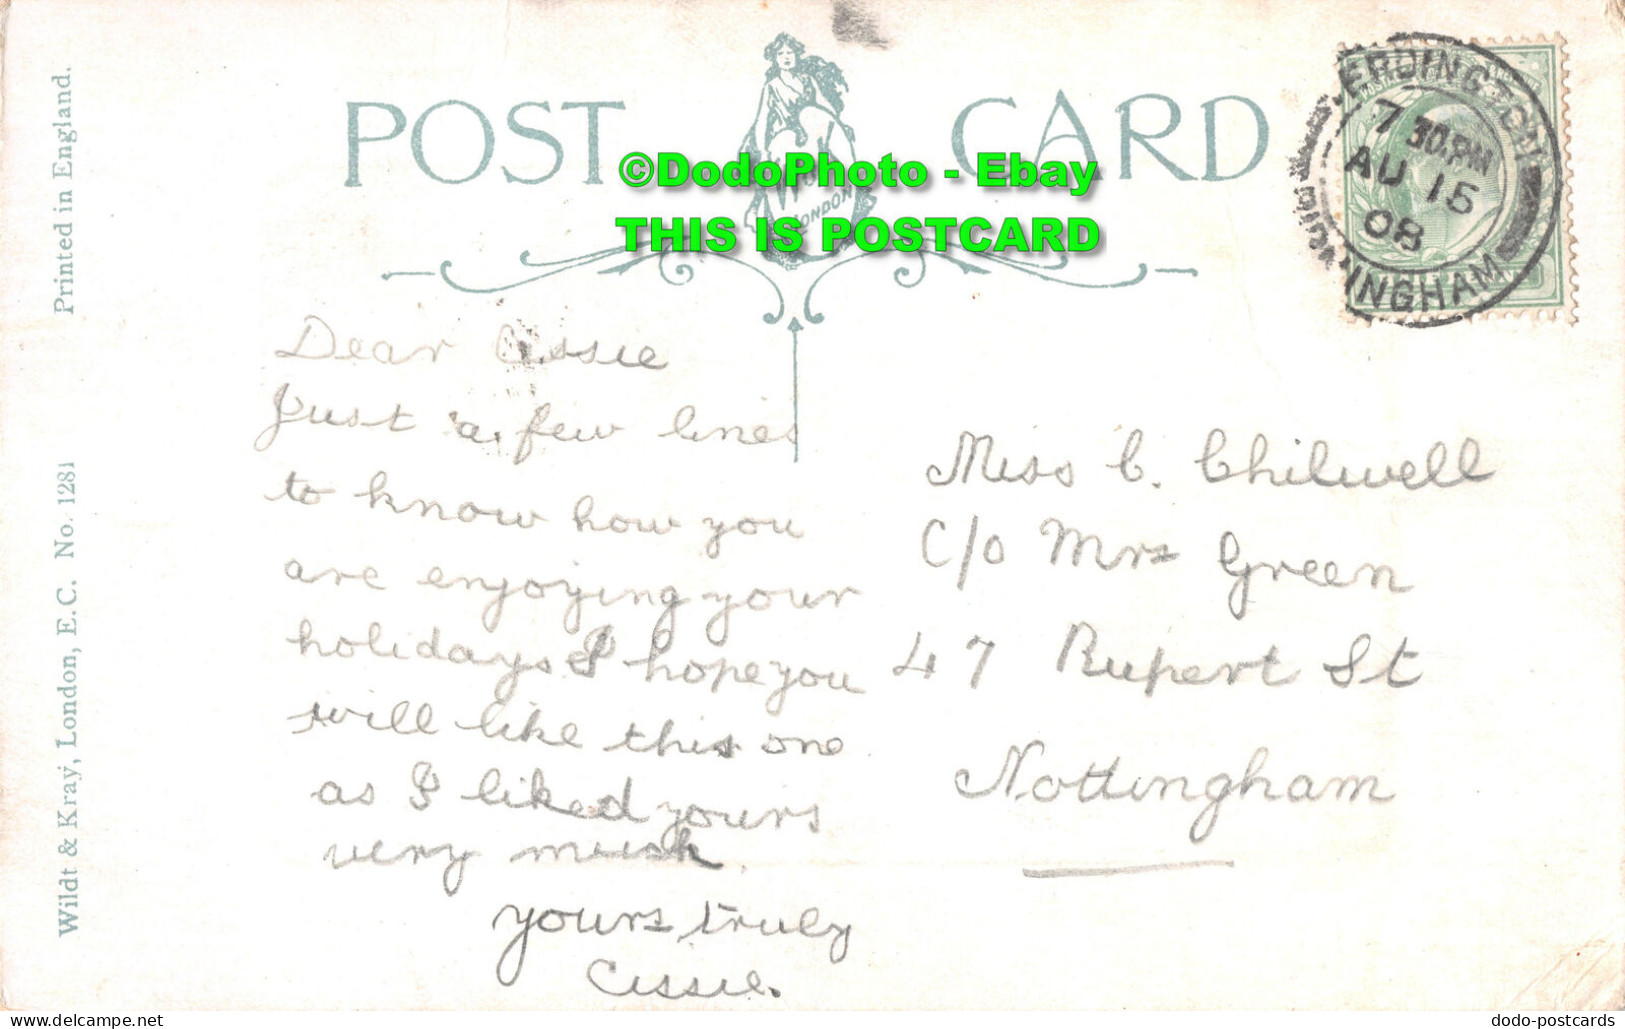 POST CARD
LONDON
©DodoPhoto - Ebay
THIS IS POSTCARD
ERDINGTON
7 30.PM
AU 15
08
BIRMINGHAM
Printed in England.
Wildt & Kray, London, E.C. No. 1281
Dear Cissie
Just a few lines
to know how you
are enjoying your
holidays I hope you
will like this one
as I liked yours
very much.
yours truly
Cissie.
Miss C. Chilwell
C/o Mrs Green
47 Rupert St
Nottingham
dodo-postcards